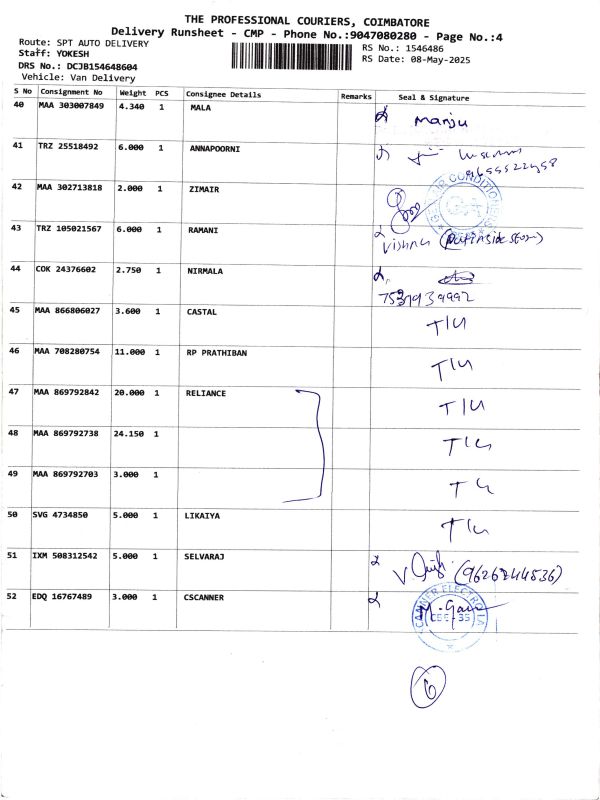 THE PROFESSIONAL COURIERS, COIMBATORE
Delivery Runsheet - CMP - Phone No.:9047080280 - Page No.:4
Route: SPT AUTO DELIVERY
Staff: YOKESH
DRS No.: DCJB154648604
Vehicle: Van Delivery
RS No.: 1546486
RS Date: 08-May-2025
S No Consignment No Weight PCS Consignee Details Remarks Seal & Signature
40 MAA 303007849 4.340 1 MALA Manju
41 TRZ 25518492 6.000 1 ANNAPOORNI
42 MAA 302713818 2.000 1 ZIMAIR
43 TRZ 105021567 6.000 1 RAMANI Vishnu
44 COK 24376602 2.750 1 NIRMALA
45 MAA 866806027 3.600 1 CASTAL T/U
46 MAA 708280754 11.000 1 RP PRATHIBAN T/U
47 MAA 869792842 20.000 1 RELIANCE T/U
48 MAA 869792738 24.150 1 T/U
49 MAA 869792703 3.000 1 T/U
50 SVG 4734850 5.000 1 LIKAIYA T/U
51 IXM 508312542 5.000 1 SELVARAJ (9626244536)
52 EDQ 16767489 3.000 1 CSCANNER
6